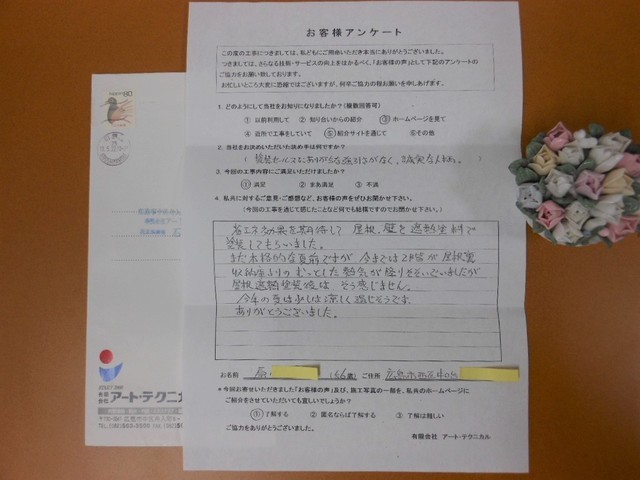 お客様アンケート
この度の工事につきましては、私どもにご用命いただき本当にありがとうございました。
つきましては、さらなる技術・サービスの向上をはかるべく、「お客様の声」として下記のアンケートの
ご協力をお願い致しております。
お忙しいところ大変に恐縮ではございますが、何卒ご協力の程お願いを申しあげます。
1. どのようにして当社をお知りになりましたか?(複数回答可)
① 以前利用して ② 知り合いからの紹介 ③ ホームページを見て
④ 近所で工事をしていて ⑤ 紹介サイトを通じて ⑥その他
2. 当社をお決めいただいた決め手は何ですか?
3. 今回の工事内容にご満足いただけましたか?
① 満足 ② まあ満足 ③ 不満
4. 私共に対するご意見・ご感想など、お客様の声をぜひお聞かせ下さい。
(今回の工事を通じて感じたことなど何でも結構ですのでお聞かせ下さい。)
省エネ効果を期待して 屋根、壁を遮熱塗料で
塗装してもらいました。
まだ本格的な夏前ですが 今までは2階が屋根裏
収納庫よりのむっとした熱気が降りそそいでいましたが
屋根遮熱塗装後は そう感じません。
今年の夏は少しは涼しく過せそうです。
ありがとうございました。
お名前 原 ご住所 広島市西区
*今回お寄せいただきました「お客様の声」及び、施工写真の一部を、私共のホームページに
ご紹介をさせていただいても宜しいでしょうか?
① 了解する ② 匿名ならば了解する ③ 了解は難しい
ご協力をありがとうございました。
有限会社 アート・テクニカル
80
有限会社 アート・テクニカル